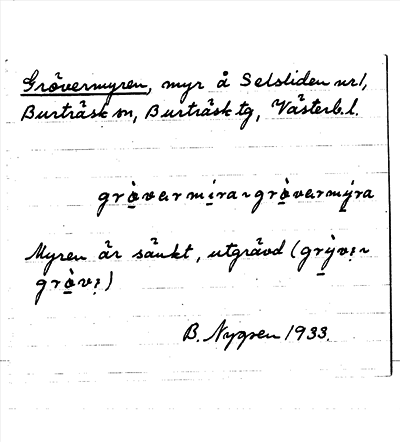 Grövermyren, myr å Selsliden nr 1,
Burträsk sn, Burträsk tg, Västerb. l.
grö̀vermíra ~ grö̀vermýra
Myren är sänkt, utgrävd (grỳvi ~
grö̀vi)
B. Nygren 1933.